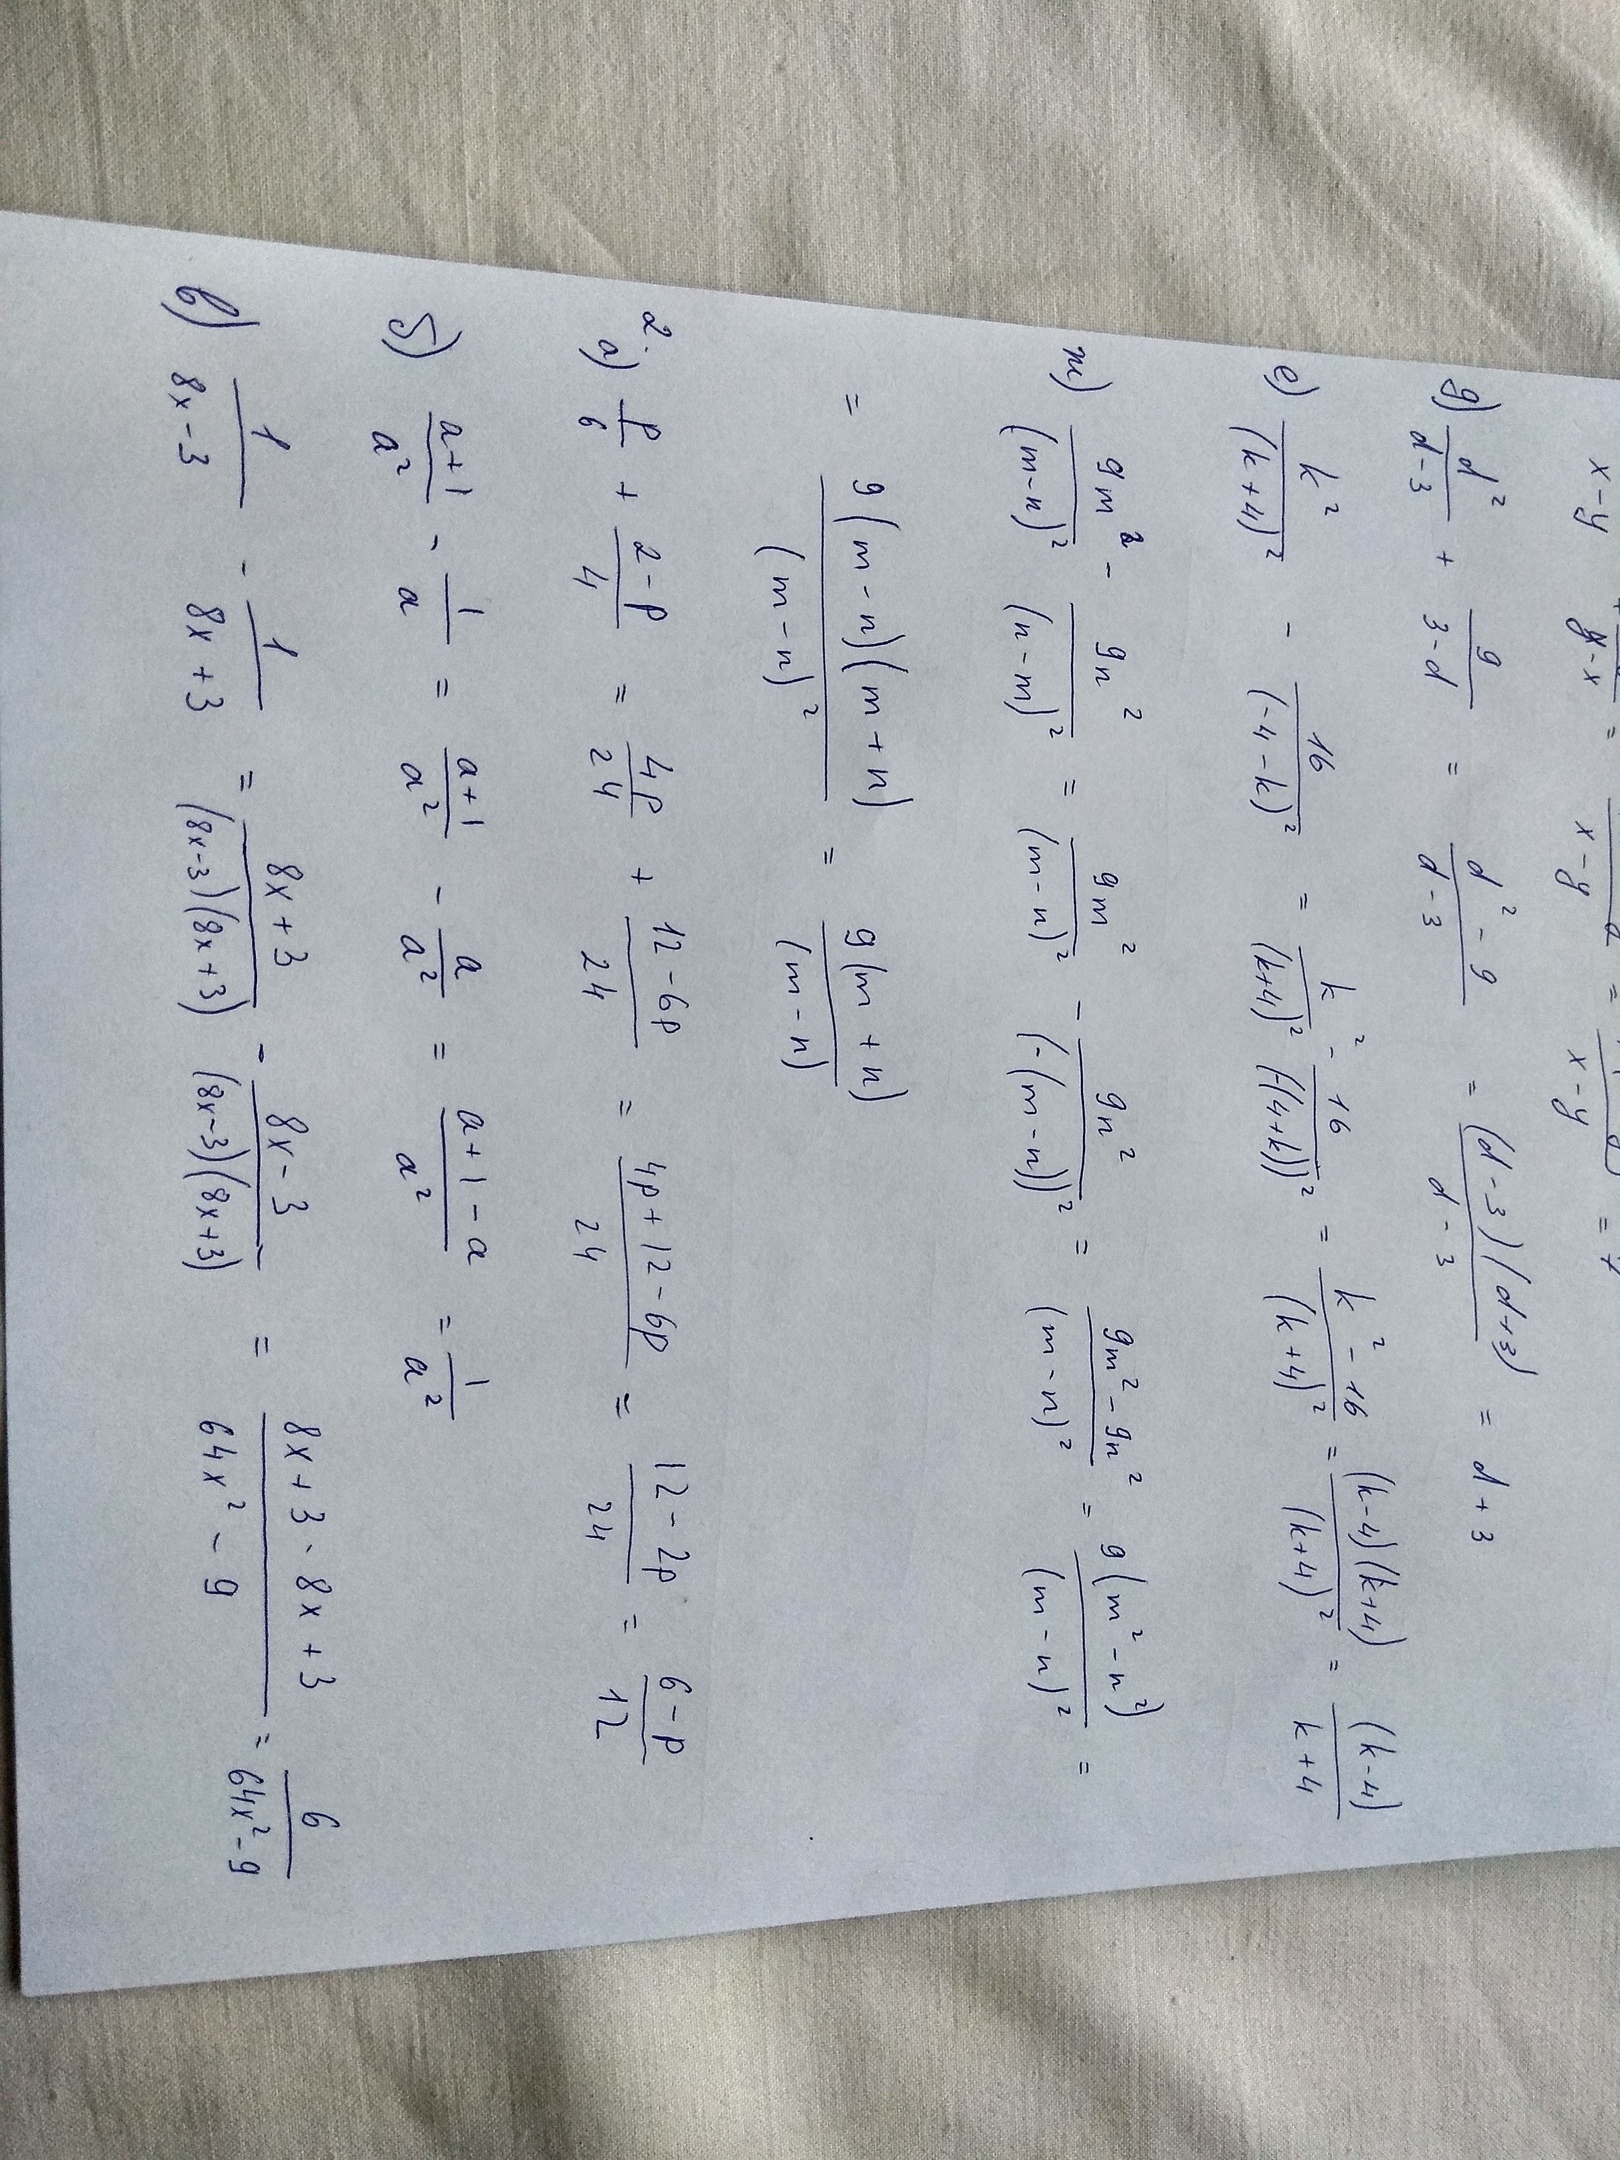 x-y y-x = x-y = x-y =
д) d²/(d-3) + 9/(3-d) = (d²-9)/(d-3) = (d-3)(d+3)/(d-3) = d+3
е) k²/(k+4)² - 16/(-4-k)² = k²/(k+4)² - 16/(-(4+k))² = (k²-16)/(k+4)² = (k-4)(k+4)/(k+4)² = (k-4)/(k+4)
ж) 9m²/(m-n)² - 9n²/(n-m)² = 9m²/(m-n)² - 9n²/(-(m-n))² = (9m²-9n²)/(m-n)² = 9(m²-n²)/(m-n)² =
= 9(m-n)(m+n)/(m-n)² = 9(m+n)/(m-n)
2.
а) p/6 + (2-p)/4 = 4p/24 + (12-6p)/24 = (4p+12-6p)/24 = (12-2p)/24 = (6-p)/12
б) (a+1)/a² - 1/a = (a+1)/a² - a/a² = (a+1-a)/a² = 1/a²
в) 1/(8x-3) - 1/(8x+3) = (8x+3)/(8x-3)(8x+3) - (8x-3)/(8x-3)(8x+3) = (8x+3-8x+3)/(64x²-9) = 6/(64x²-9)